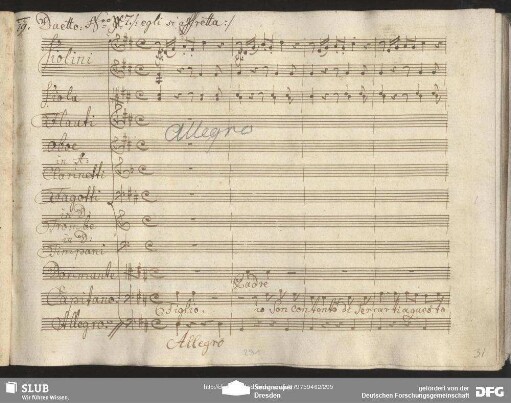 19. Duetto.
egli si affretta:/
Violini
Viola
Flauti
Allegro
Oboe
in A:
Clarinetti
Fagotti
in D:
Trombe
in D:
Timpani
Dorimante
Padre
Capitano.
Figlio. io son contento di
Allegro.
Allegro
31
SLUB
Wir führen Wissen.
Dresden
gefördert von der
Deutschen Forschungsgemeinschaft
DFG